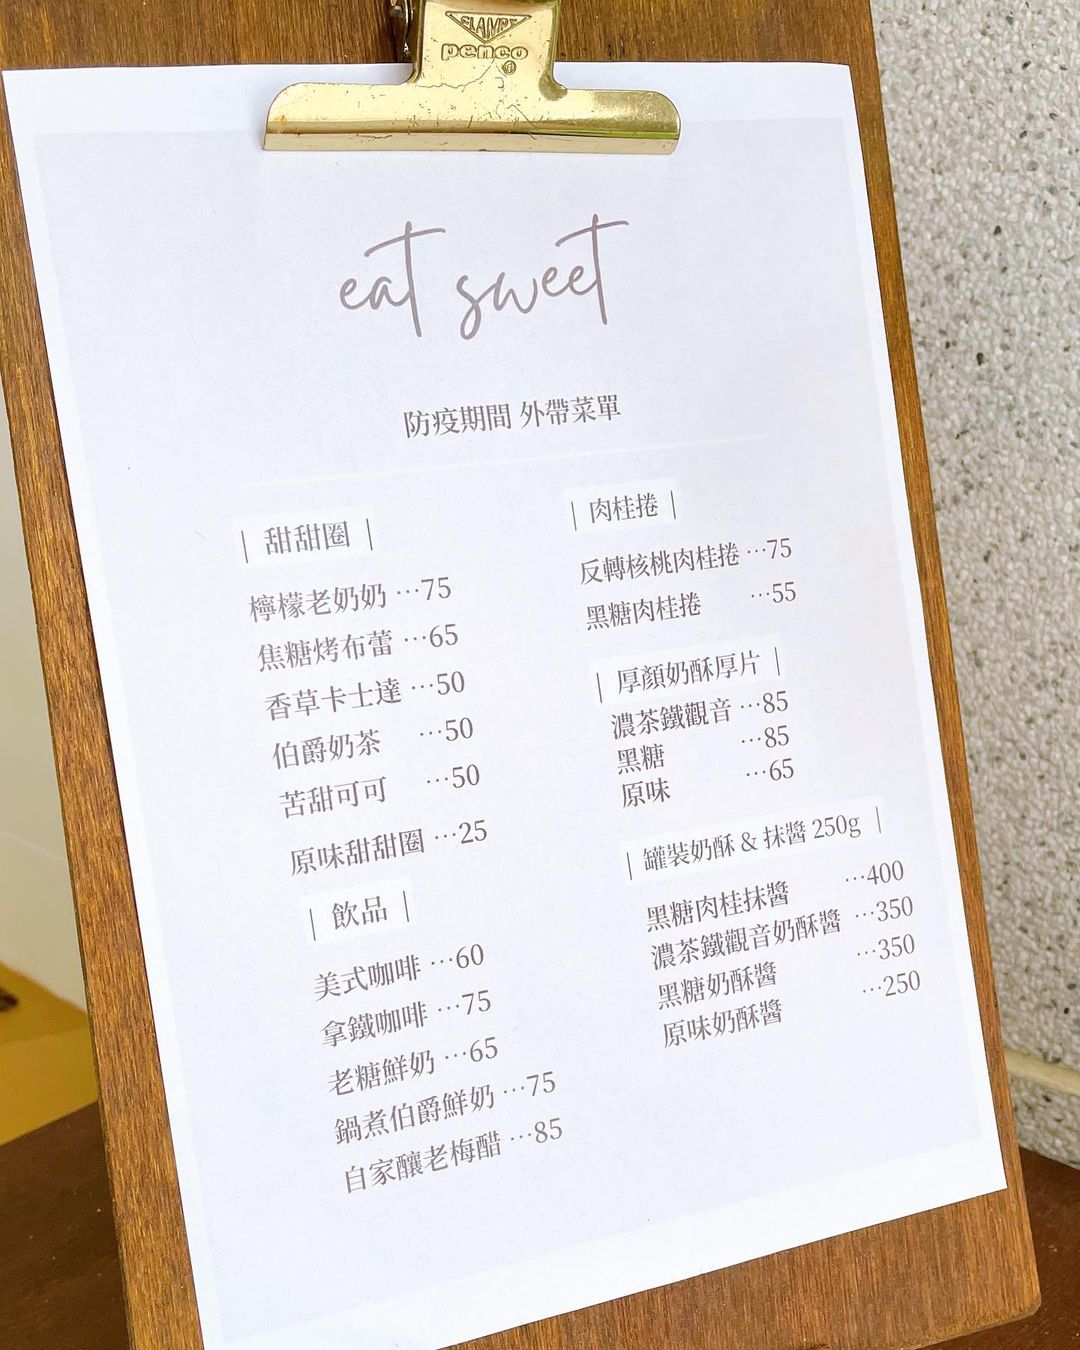 ELAMPT
penco
eat sweet
防疫期間 外帶菜單
| 甜甜圈 |
檸檬老奶奶 …75
焦糖烤布蕾 …65
香草卡士達 …50
伯爵奶茶 …50
苦甜可可 …50
原味甜甜圈 …25
| 飲品 |
美式咖啡 …60
拿鐵咖啡 …75
老糖鮮奶 …65
鍋煮伯爵鮮奶 …75
自家釀老梅醋 …85
| 肉桂捲 |
反轉核桃肉桂捲 …75
黑糖肉桂捲 …55
| 厚顏奶酥厚片 |
濃茶鐵觀音 …85
黑糖 …85
原味 …65
| 罐裝奶酥 & 抹醬 250g |
黑糖肉桂抹醬 …400
濃茶鐵觀音奶酥醬 …350
黑糖奶酥醬 …350
原味奶酥醬 …250